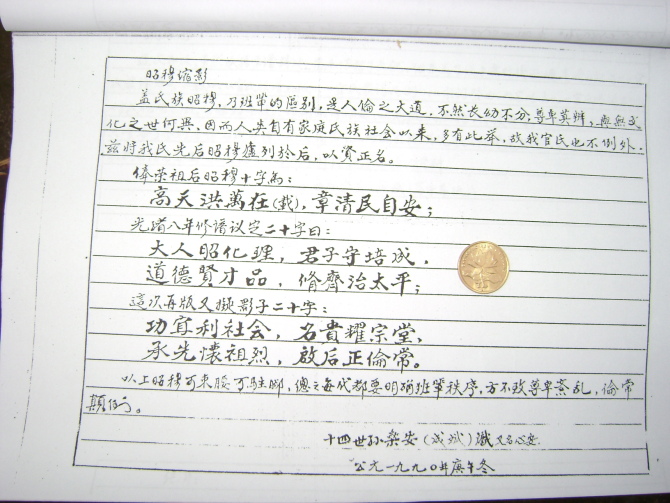 昭穆缩影
盖氏族昭穆,乃班辈的區别,是人倫之大道,不然長幼不分,尊卑莫辨,與無文
化之世何異,因而人类自有家庭民族社会以来,多有此举,故我官民也不例外,
兹将我氏先后昭穆臚列於后,以資正名。
俸荣祖后昭穆十字為:
高天洪萬在(载),章清民自安;
光绪八年修谱议定二十字曰:
大人昭化理,君子守培成,
道德賢才品,脩齊治太平;
這次再版又擬影子二十字:
功宜利社会,名貴耀宗堂,
承先懷祖烈,啟后正倫常。
以上昭穆可来 可 ,總之每代都要明确班辈秩序,方不致尊卑紊乱,倫常
顛倒。
十四世孙荣安(成斌)識 又名心安
公元一九九〇年庚午冬